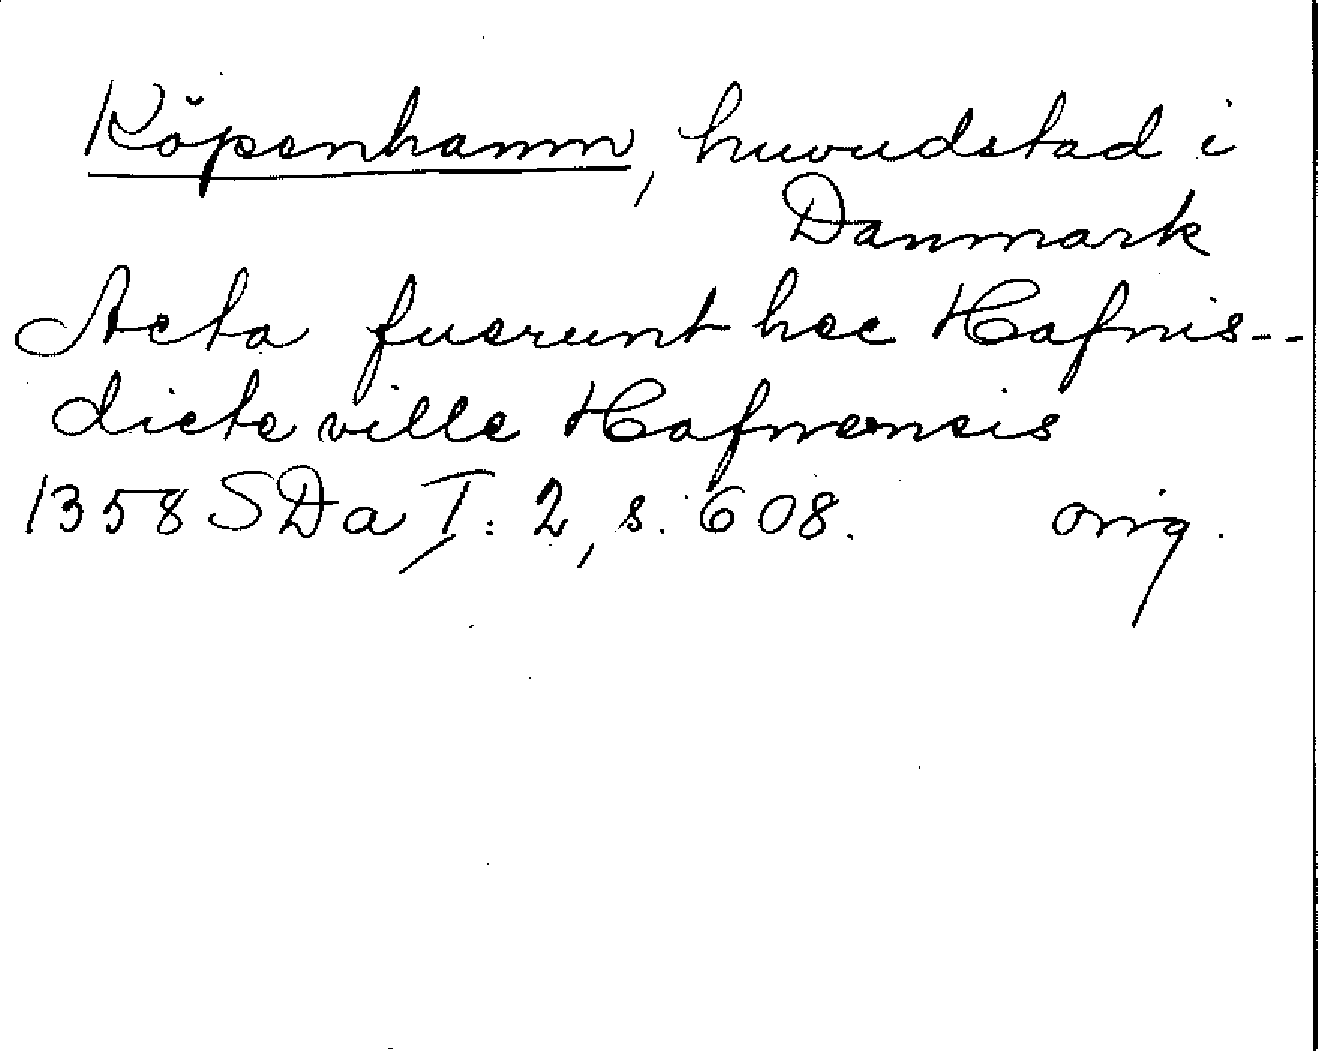 Köpenhamn, huvudstad i
Danmark
Acta fuerunt hec Hafnis--
dicte ville Hafnensis
1358 SDa I: 2, s. 608. orig.